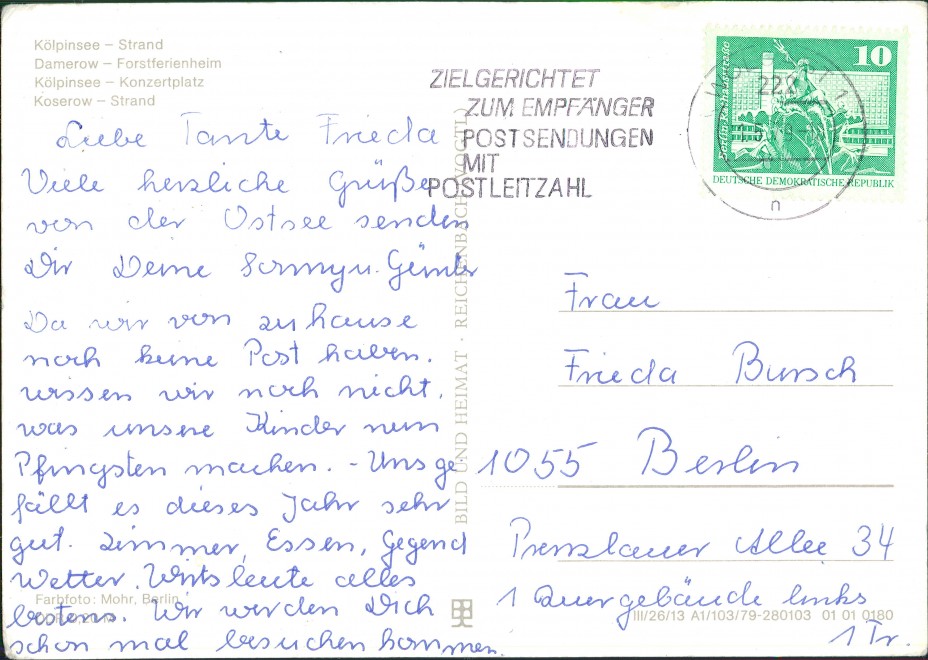 Kölpinsee – Strand
Damerow – Forstferienheim
Kölpinsee – Konzertplatz
Koserow – Strand
Liebe Tante Frieda
Viele herzliche Grüße
von der Ostsee senden
Dir Deine
Da wir von zu hause
noch keine Post haben.
wissen wir noch nicht,
was unsere Kinder nun
Pfingsten machen. - Uns ge
fällt es dieses Jahr sehr
gut. Zimmer, Essen, Gegend
Wetter, Wirtsleute alles
bestens. Wir werden Dich
schon mal besuchen kommen.
Farbfoto: Mohr, Berlin
BILD UND HEIMAT · REICHENBACH (VOGTL)
ZIELGERICHTET
ZUM EMPFÄNGER
POSTSENDUNGEN
MIT
POSTLEITZAHL
10
DEUTSCHE DEMOKRATISCHE REPUBLIK
222
n
Frau
Frieda Bursch
1055 Berlin
Prenzlauer Allee 34
1 Quergebäude links
1 Tr.
III/26/13 A1/103/79-280103 01 01 0180